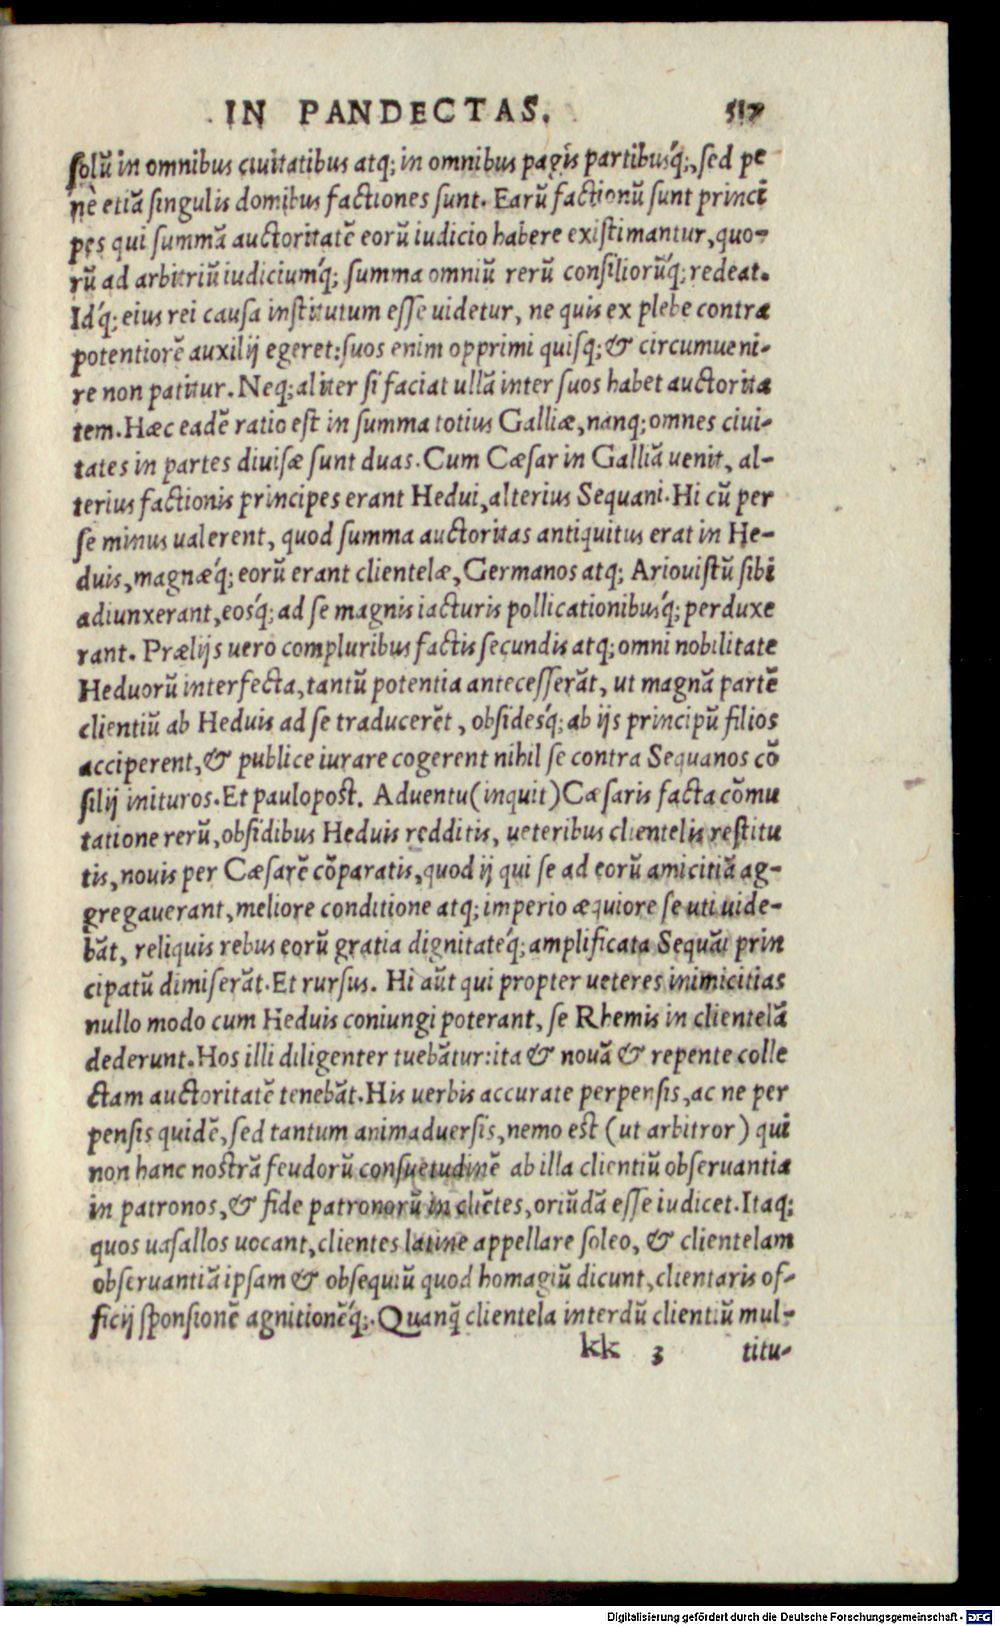 IN PANDECTAS. 517
solũ in omnibus ciuitatibus atq; in omnibus pagis partibusq́;, sed pe
nè etiã singulis domibus factiones sunt. Earũ factionũ sunt princi
pes qui summã auctoritatẽ eorũ iudicio habere existimantur, quo-
rũ ad arbitriũ iudiciumq́; summa omniũ rerũ consiliorũq́; redeat.
Idq́; eius rei causa institutum esse uidetur, ne quis ex plebe contra
potentiorẽ auxilij egeret: suos enim opprimi quisq; & circumueni-
re non patitur. Neq; aliter si faciat ullã inter suos habet auctorita
tem. Hæc eadẽ ratio est in summa totius Galliæ, nanq; omnes ciui-
tates in partes diuisæ sunt duas. Cum Cæsar in Galliã uenit, al-
terius factionis principes erant Hedui, alterius Sequani. Hi cũ per
se minus ualerent, quod summa auctoritas antiquitus erat in He-
duis, magnæq́; eorũ erant clientelæ, Germanos atq; Ariouistũ sibi
adiunxerant, eosq́; ad se magnis iacturis pollicationibusq́; perduxe
rant. Prælijs uero compluribus factis secundis atq; omni nobilitate
Heduorũ interfecta, tantũ potentia antecesserãt, ut magnã partẽ
clientiũ ab Heduis ad se traducerẽt, obsidesq́; ab ijs principũ filios
acciperent, & publice iurare cogerent nihil se contra Sequanos cõ
silij inituros. Et paulopost. Aduentu (inquit) Cæsaris facta cõmu
tatione rerũ, obsidibus Heduis redditis, ueteribus clientelis restitu
tis, nouis per Cæsarẽ cõparatis, quod ij qui se ad eorũ amicitiã ag-
gregauerant, meliore conditione atq; imperio æquiore se uti uide-
bãt, reliquis rebus eorũ gratia dignitateq́; amplificata Sequãi prin
cipatũ dimiserãt. Et rursus. Hi aũt qui propter ueteres inimicitias
nullo modo cum Heduis coniungi poterant, se Rhemis in clientelã
dederunt. Hos illi diligenter tuebãtur: ita & nouã & repente colle
ctam auctoritatẽ tenebãt. His uerbis accurate perpensis, ac ne per
pensis quidẽ, sed tantum animaduersis, nemo est (ut arbitror) qui
non hanc nostrã feudorũ consuetudinẽ ab illa clientiũ obseruantia
in patronos, & fide patronorũ in cliẽtes, oriũdã esse iudicet. Itaq;
quos uasallos uocant, clientes latine appellare soleo, & clientelam
obseruantiã ipsam & obsequiũ quod homagiũ dicunt, clientaris of-
ficij sponsionẽ agnitionẽq́;. Quanq̃ clientela interdũ clientiũ mul-
kk 3 titu-
Digitalisierung gefördert durch die Deutsche Forschungsgemeinschaft - DFG